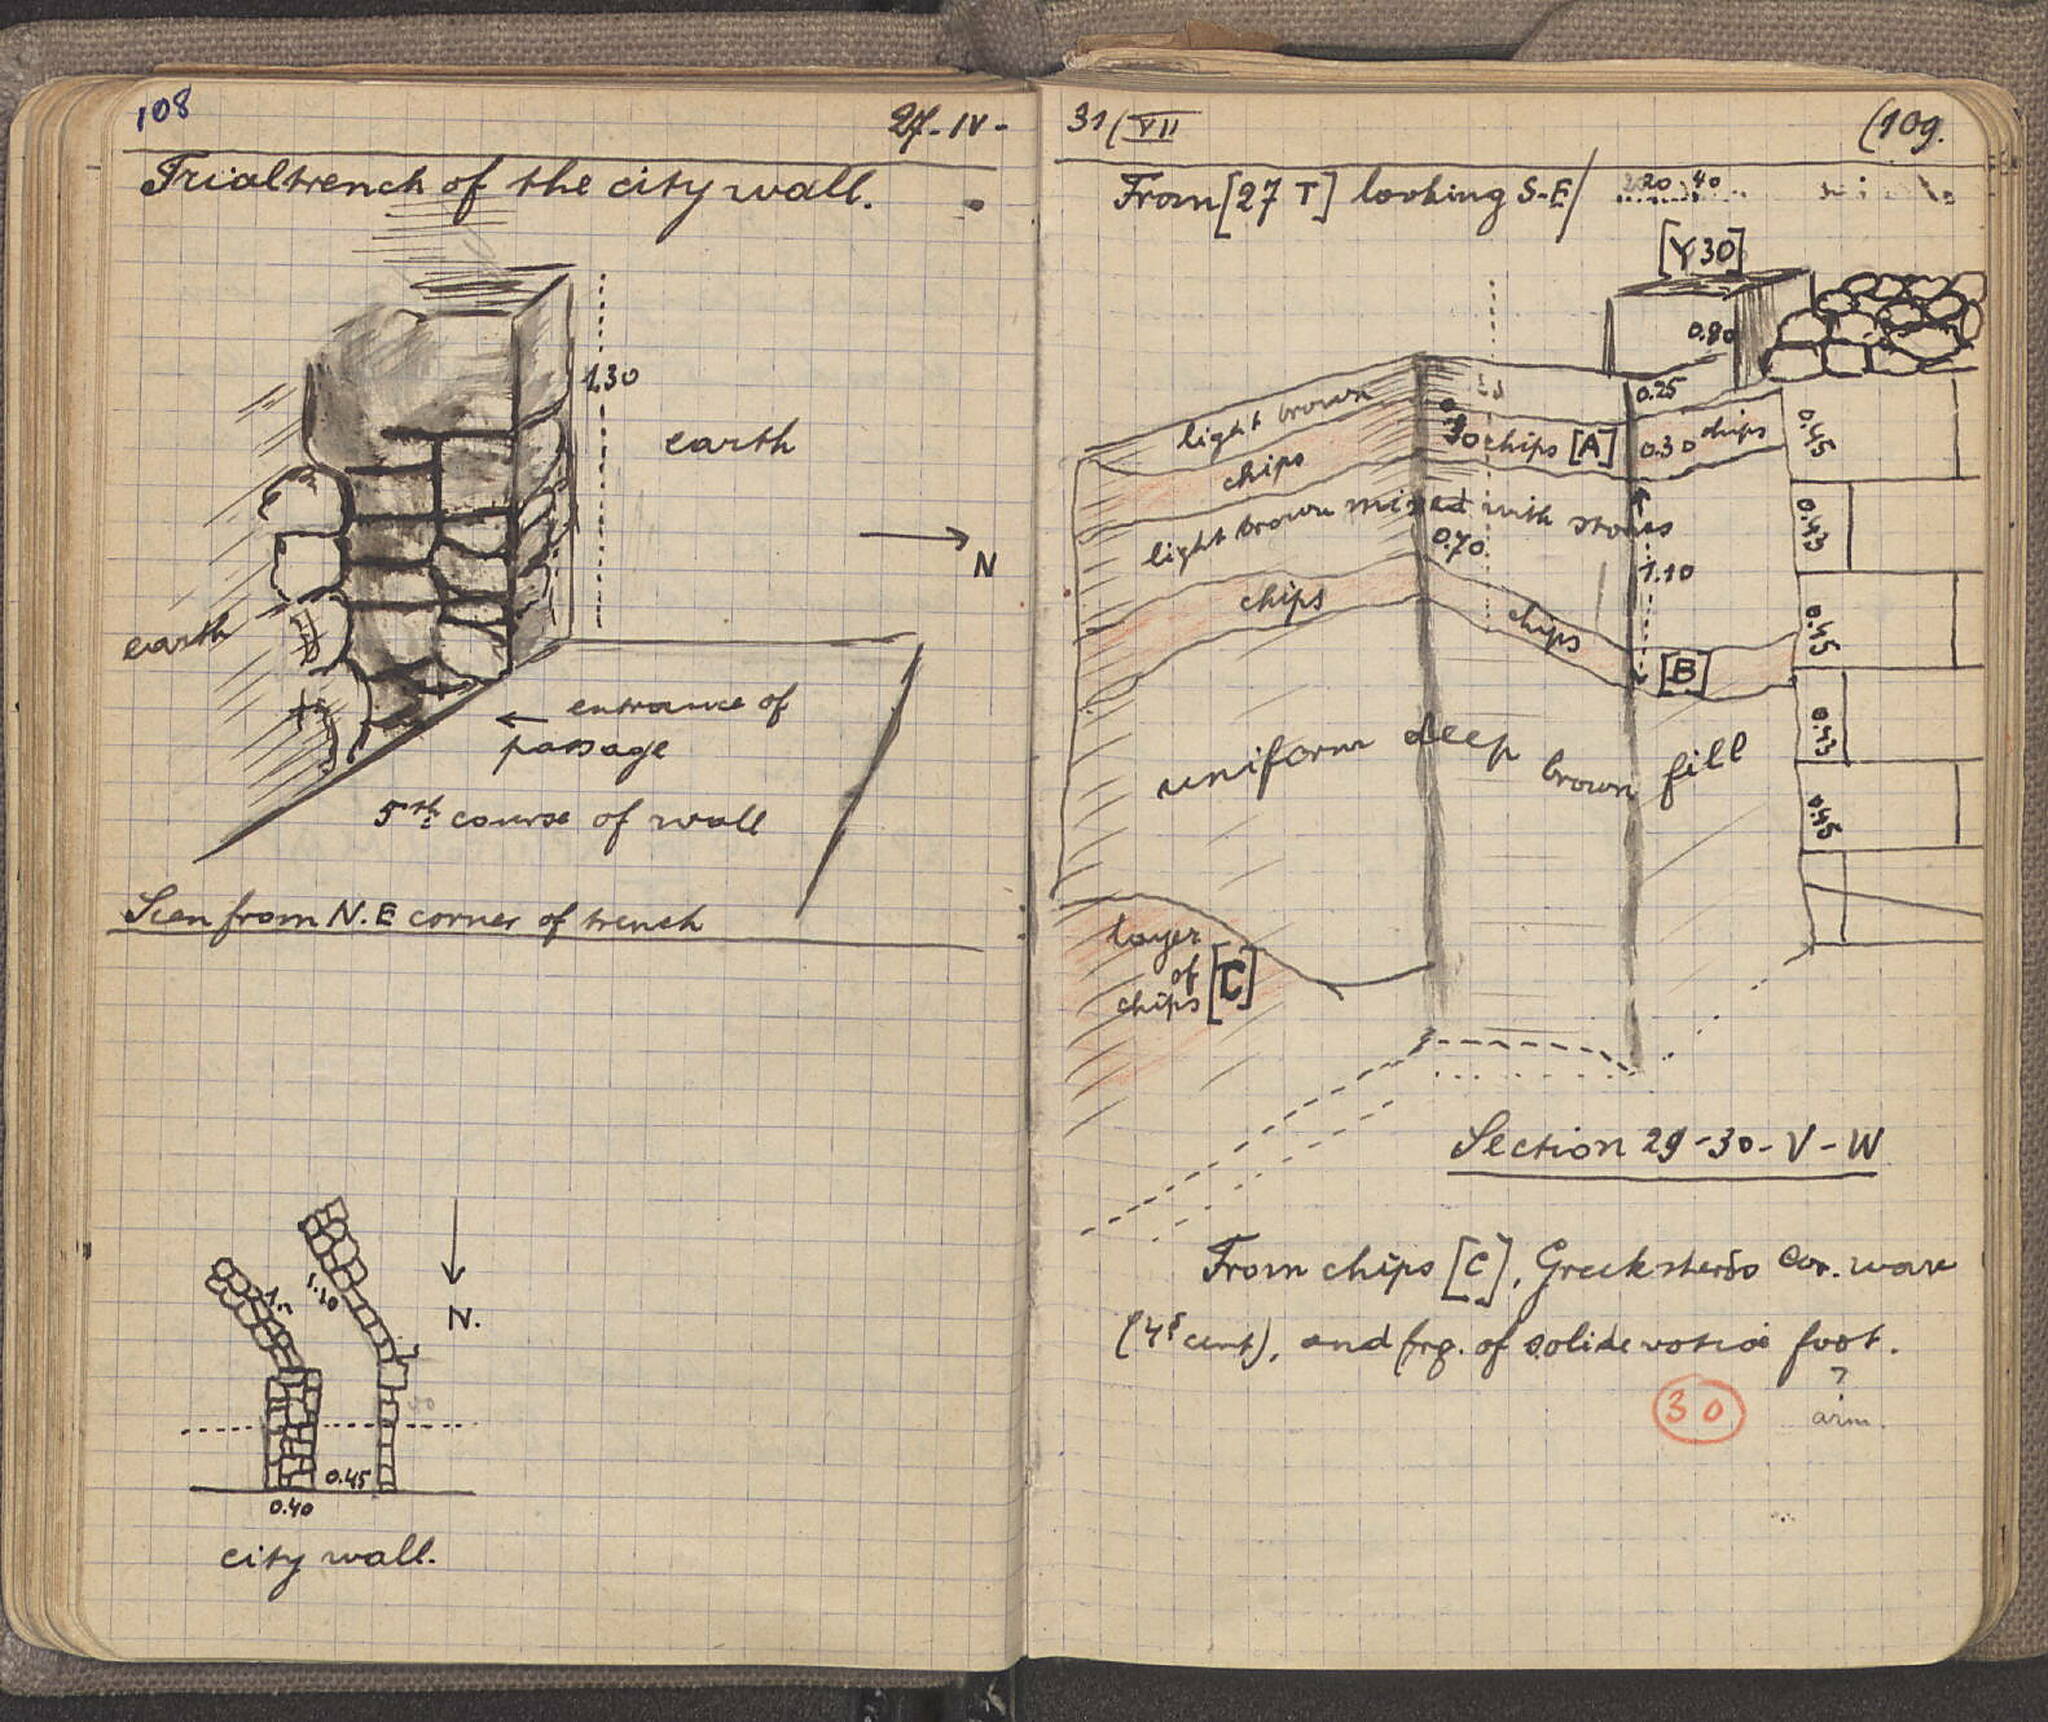 108
27-IV-
Trialtrench of the city wall.
1.30
earth
N
earth
← entrance of
passage
5th course of wall
Seen from N.E corner of trench
1.10
N.
0.45
0.40
city wall.
31/VII
(109.
From [27 T] looking S-E/
20 40
[Y30]
0.80
light brown
0.25
chips
chips [A]
0.30 chips
0.45
light brown mixed with stones
0.70
0.43
1.10
chips
chips
0.45
[B]
0.43
uniform deep brown fill
0.45
layer
of
chips [C]
Section 29-30-V-W
From chips [C], Greek sherds cor. ware
(4t cent), and frg. of solide votive foot.
?
30
arm.